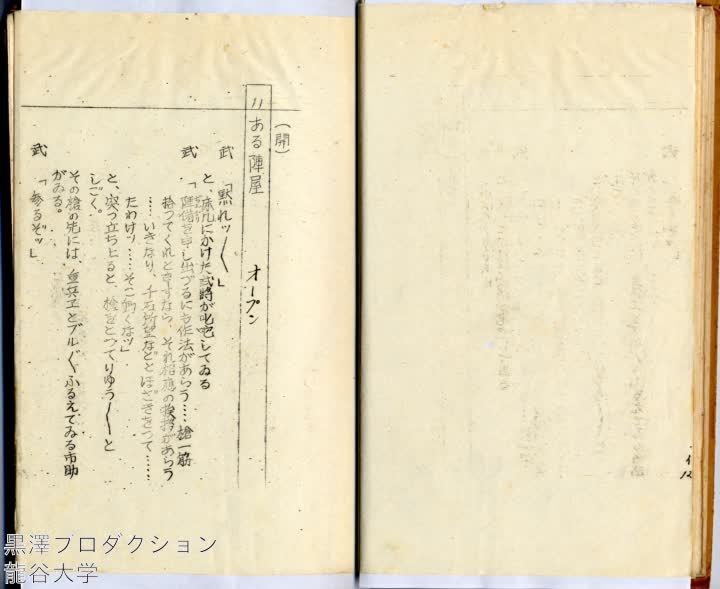 (開)
11 ある陣屋 オープン
武 「黙れッ〱」
と、床几にかけた武将が叱咤してゐる
武 「陣借を申し出づるにも作法があらう……槍一筋
持つてくれと申すなら、それ相應の挨拶があらう
……いきなり、千石所望などとほざきをつて……
たわけッ……そこ動くなッ」
と、突つ立ち上ると、槍をとつてりゆう〱と
しごく。
その槍の先には、重兵エとブル〱ふるえてゐる市助
がゐる。
武 「参るぞッ」
12
黒澤プロダクション
龍谷大学